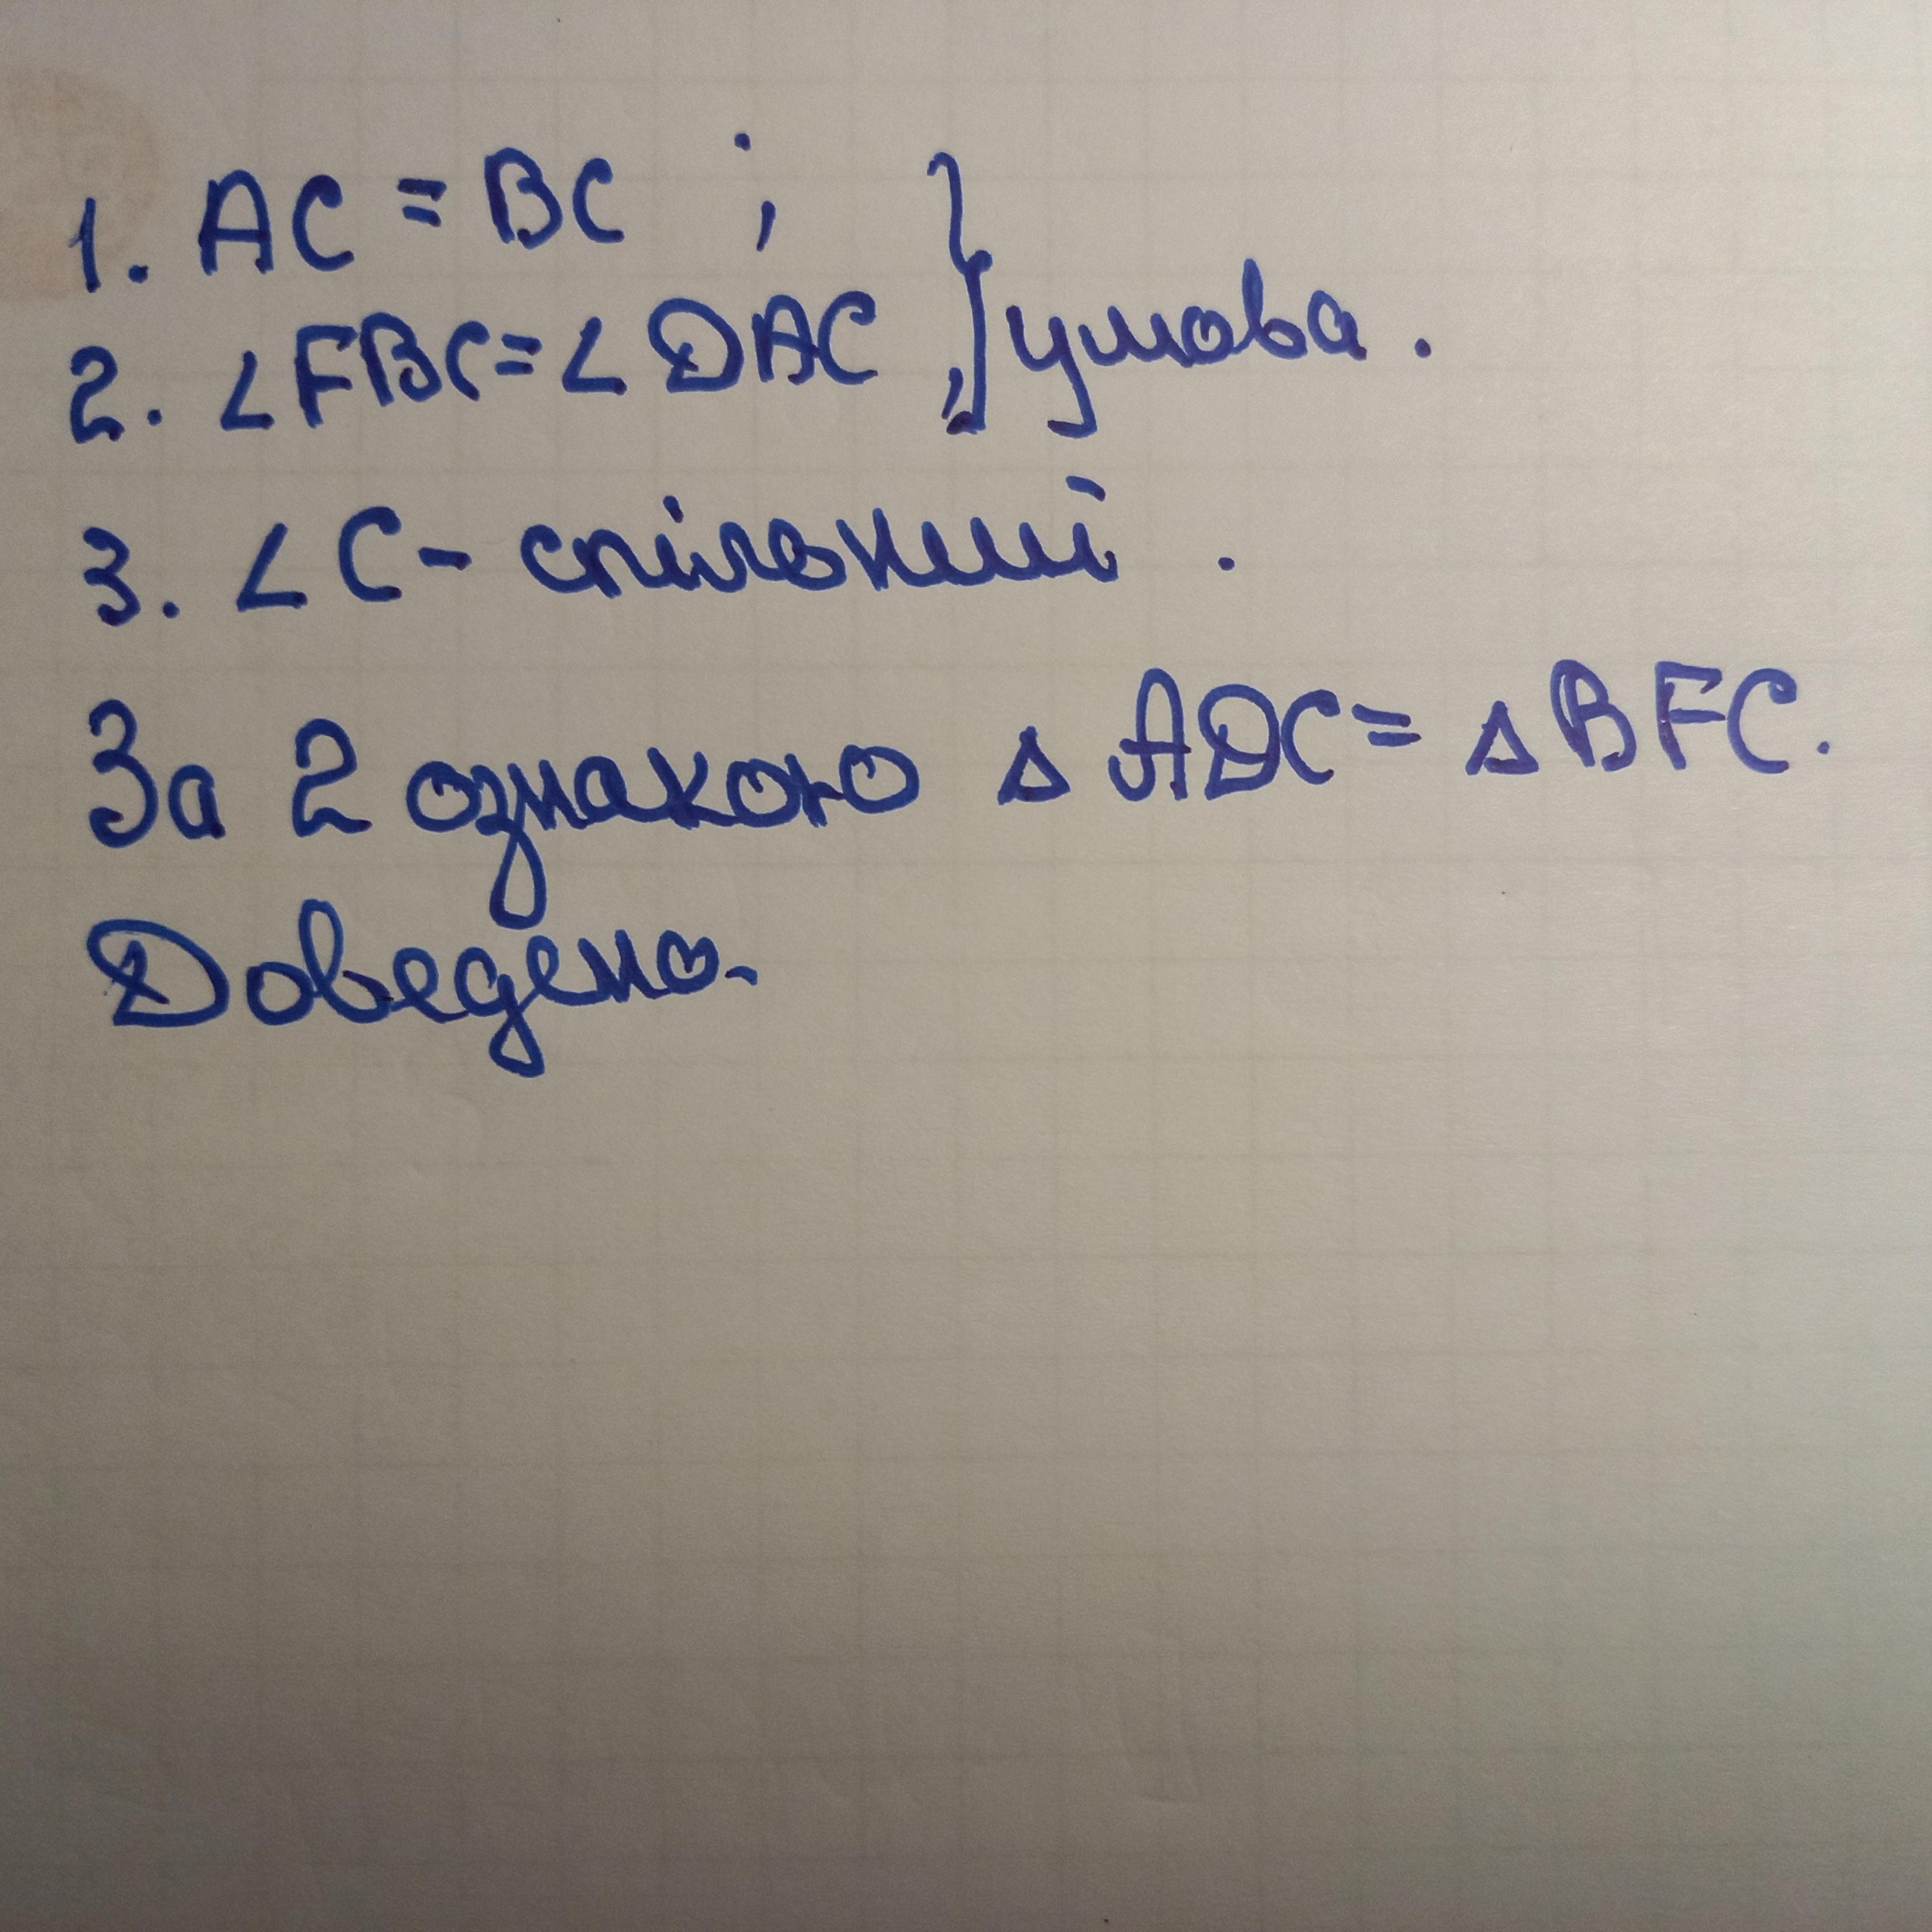 1. AC = BC ;
2. ∠FBC = ∠DAC, } умова.
3. ∠C - спільний.
За 2 ознакою △ADC = △BFC.
Доведено.